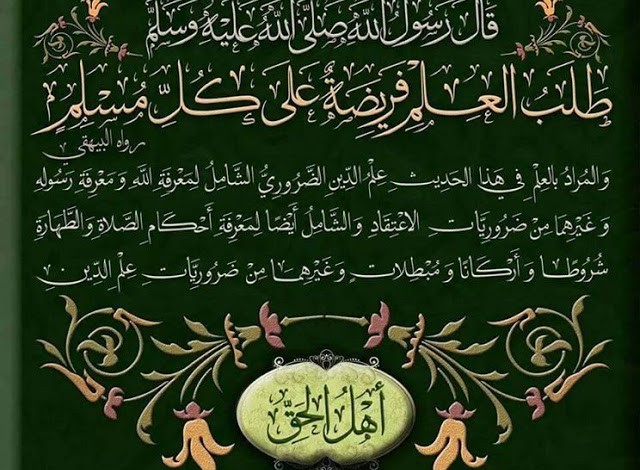 قَالَ رَسُولُ اللهِ صَلَّى اللهُ عَلَيْهِ وَسَلَّمَ
طَلَبُ العِلْمِ فَرِيضَةٌ عَلَى كُلِّ مُسْلِمٍ
رواه البيهقي
وَالمُرَادُ بِالعِلْمِ فِي هَذَا الحَدِيثِ عِلْمُ الدِّينِ الضَّرُورِيُّ الشَّامِلُ لِمَعْرِفَةِ اللَّهِ وَمَعْرِفَةِ رَسُولِهِ
وَغَيْرِهِمَا مِنْ ضَرُورِيَّاتِ الِاعْتِقَادِ وَالشَّامِلُ أَيْضًا لِمَعْرِفَةِ أَحْكَامِ الصَّلَاةِ وَالطَّهَارَةِ
شُرُوطًا وَأَرْكَانًا وَمُبْطِلَاتٍ وَغَيْرِهَا مِنْ ضَرُورِيَّاتِ عِلْمِ الدِّينِ
أَهْلُ الحَقِّ